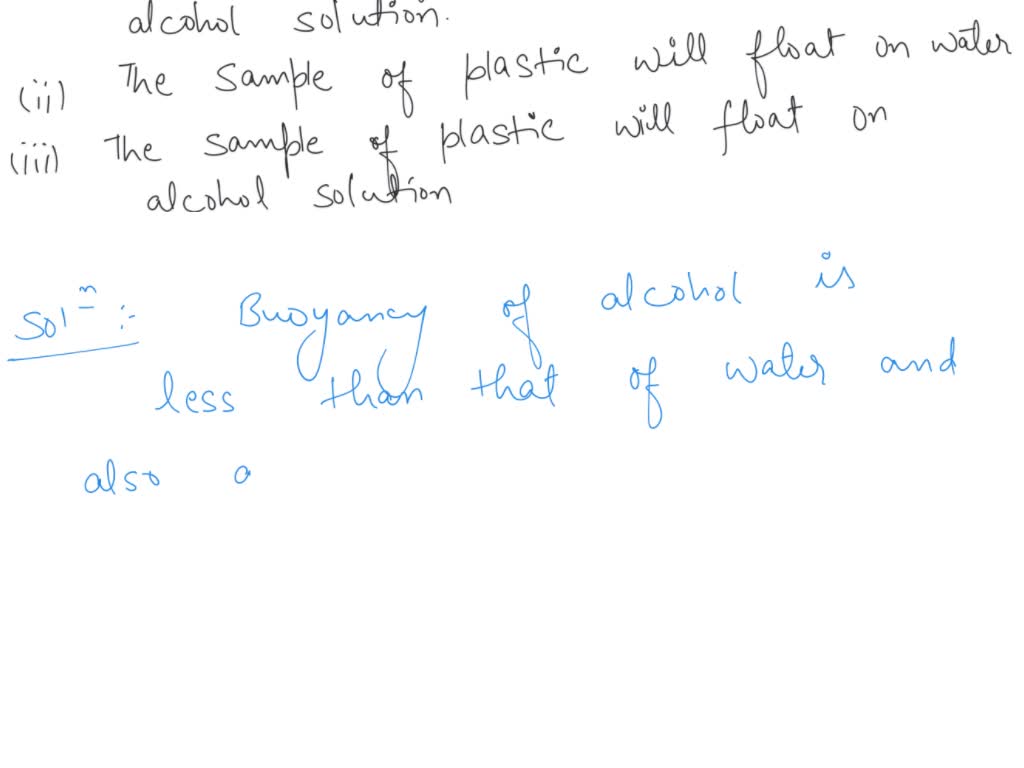 alcohol solution.
(ii) The sample of plastic will float on water
(iii) The sample of plastic will float on
alcohol solution
Solⁿ :- Buoyancy of alcohol is
less than that of water and
also a